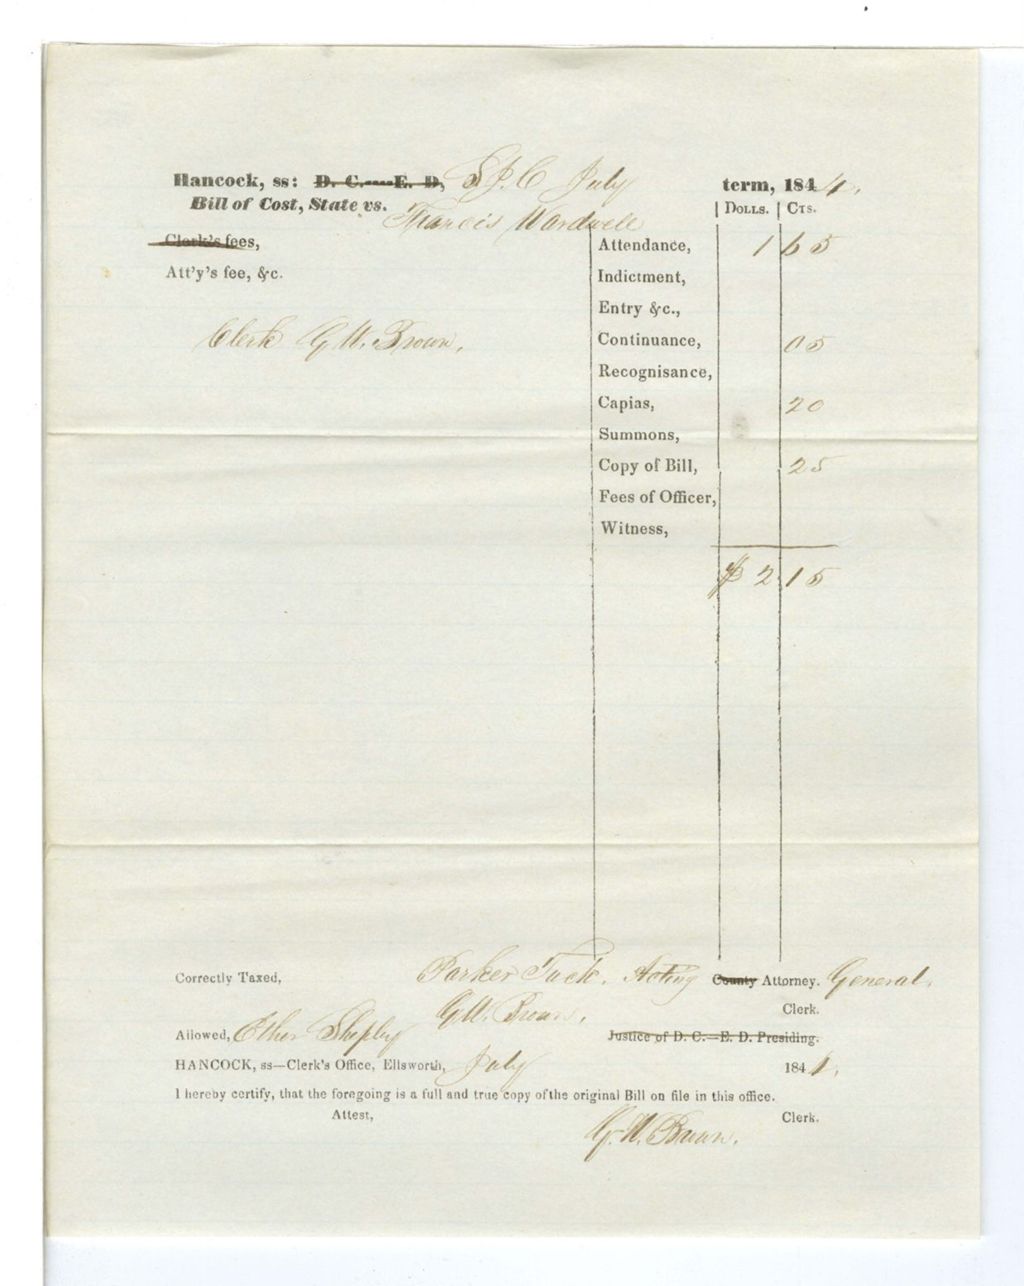 Hancock, ss: D. C.—E. D, S. J. C July term, 1844.
Bill of Cost, State vs. Francis Wardwell | Dolls. | Cts.
Clerk's fees,
Attendance, 1 65
Att'y's fee, &c.
Indictment,
Entry &c.,
Clerk G. W. Brown.
Continuance, 05
Recognisance,
Capias, 20
Summons,
Copy of Bill, 25
Fees of Officer,
Witness,
$ 2 15
Correctly Taxed, Parker Tuck. Acting County Attorney. General.
G. W. Brown. Clerk.
Allowed, Ether Shepley Justice of D. C.—E. D. Presiding.
HANCOCK, ss—Clerk's Office, Ellsworth, July 1844.
I hereby certify, that the foregoing is a full and true copy of the original Bill on file in this office.
Attest, G. W. Brown. Clerk.